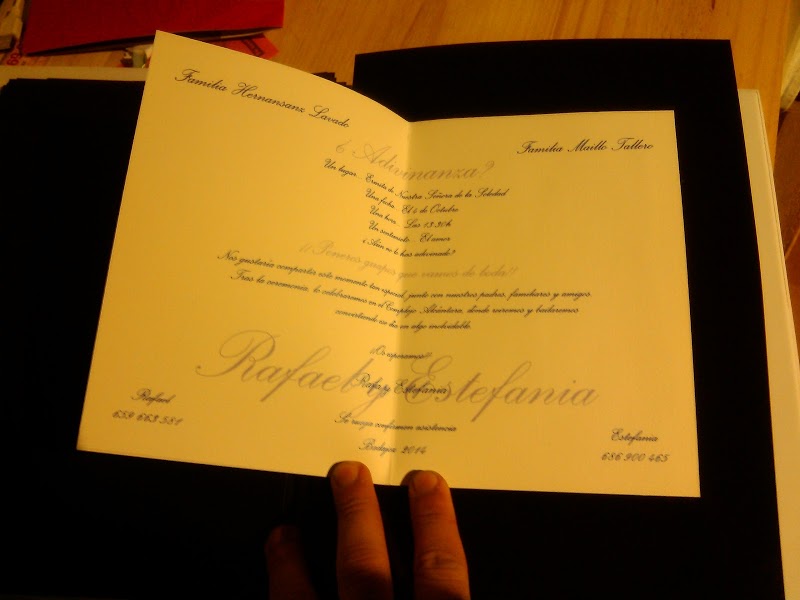 Familia Hernansanz Lavado
Familia Maillo Tallero
¿Adivinanza?
Un lugar... Ermita de Nuestra Señora de la Soledad
Una fecha... El 4 de Octubre
Una hora... Las 13:30h
Un sentimiento... El amor
¿Aún no lo has adivinado?
¡¡Poneros guapos que vamos de boda!!
Nos gustaría compartir este momento tan especial, junto con nuestros padres, familiares y amigos.
Tras la ceremonia, lo celebraremos en el Complejo Alcántara, dónde reiremos y bailaremos
convirtiendo un día en algo inolvidable.
¡¡Os esperamos!!
Rafael y Estefania
Rafa y Estefanía
Se ruega confirmen asistencia
Badajoz 2014
Rafael
659 663 581
Estefania
686 900 465